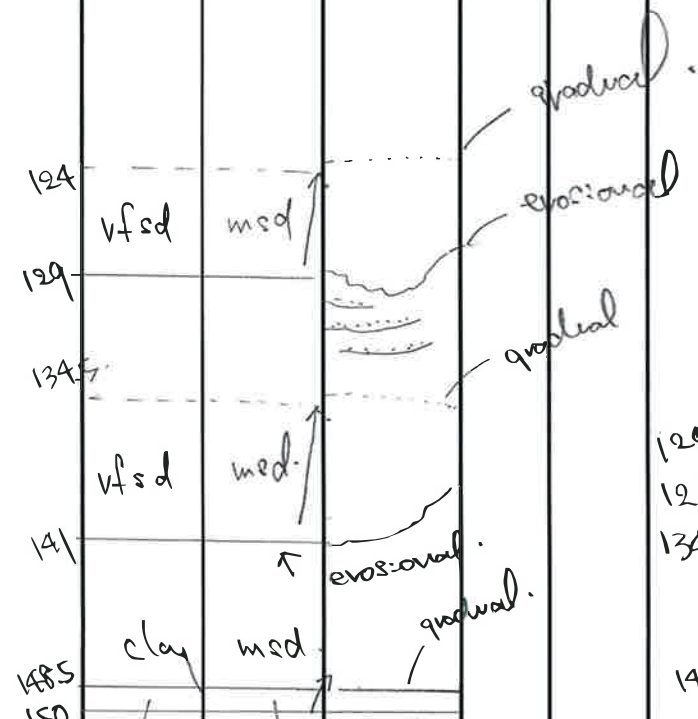 gradual.
124
vfsd msd
erosional
129
gradual
134.5
vfsd msd.
12
12
141
13
erosional.
gradual.
clay msd
148.5
14
150